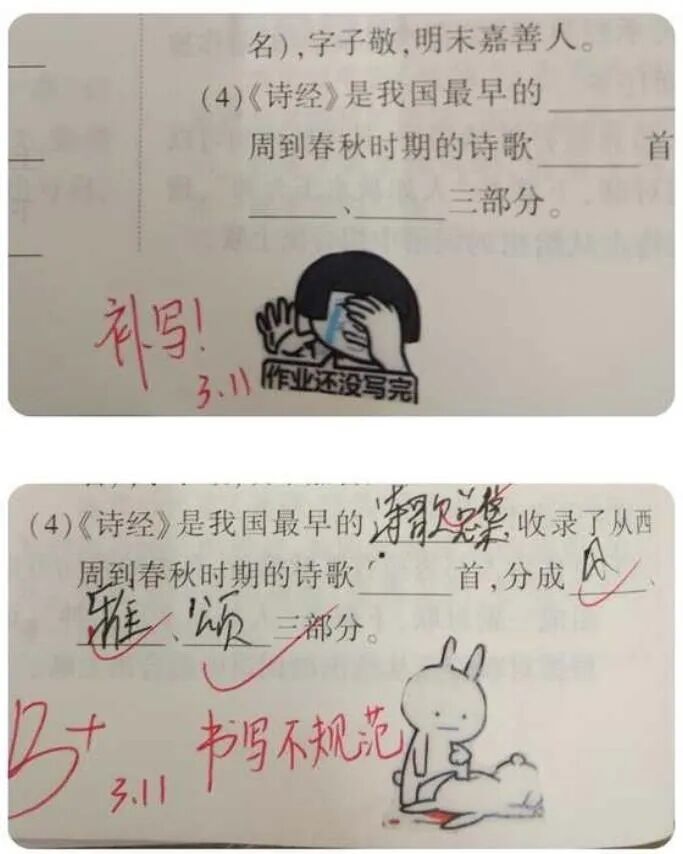 名),字子敬,明末嘉善人。
(4)《诗经》是我国最早的______
周到春秋时期的诗歌______首
______、______三部分。
补写!
3.11
作业还没写完
(4)《诗经》是我国最早的诗歌总集收录了从西
周到春秋时期的诗歌______首,分成风、
雅、颂三部分。
B+
3.11
书写不规范